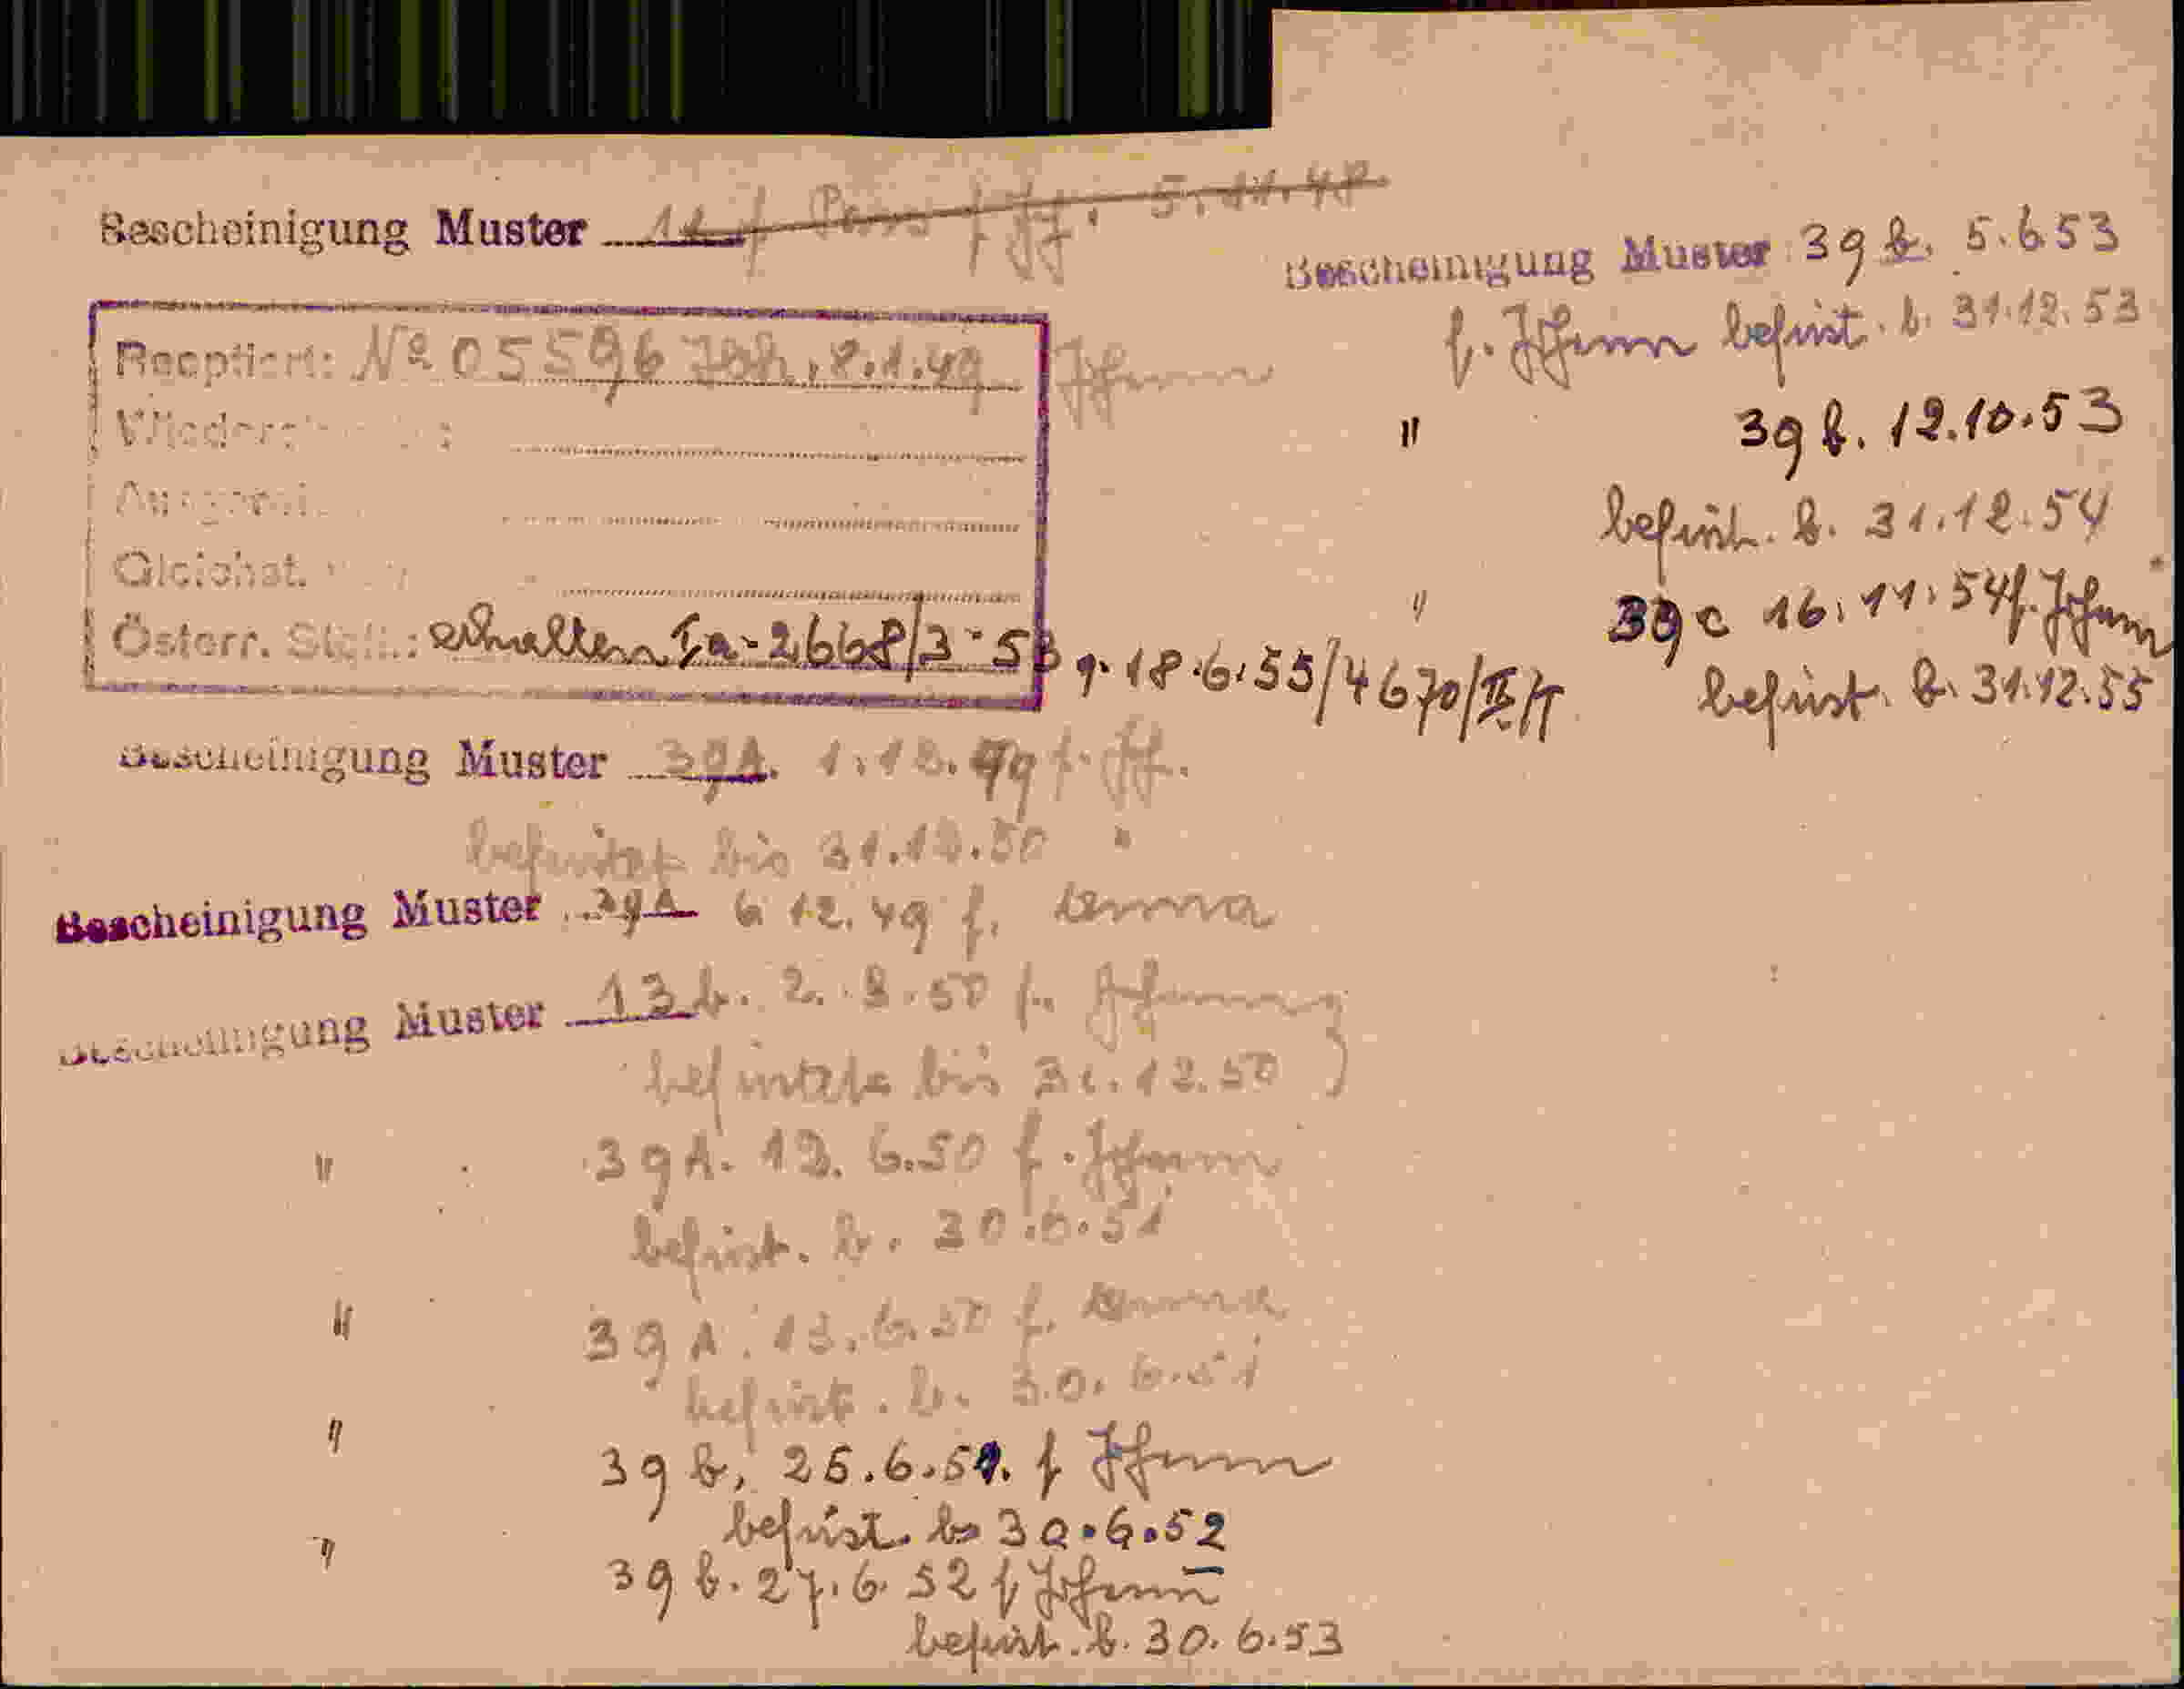 Bescheinigung Muster 11 f. Pass f. Jf. 5.11.48
Reoptiert: № 05596 Joh. 8.1.49 Johann
Gleichst.
Österr. Stell.: erhalten Ia-2668/3-53 v. 18.6.55/4670/II/T
Bescheinigung Muster 39A. 1.12.49 f. Jf.
befristet bis 31.12.50 "
Bescheinigung Muster 39A 6.12.49 f. Anna
Bescheinigung Muster 13b. 2.3.50 f. Johann
befristet bis 31.12.50
" 39A. 12.6.50 f. Johann
befrist. b. 30.6.51
" 39A. 13.6.50 f. Anna
befrist. b. 30.6.51
" 39b, 25.6.51. f Johann
befrist. b 30.6.52
" 39b. 27.6.52 f Johann
befrist. b. 30.6.53
Bescheinigung Muster 39b. 5.6.53
f. Johann befrist. b. 31.12.53
" 39b. 12.10.53
befrist. b. 31.12.54
" 39c 16.11.54 f. Johann
befrist. b. 31.12.55